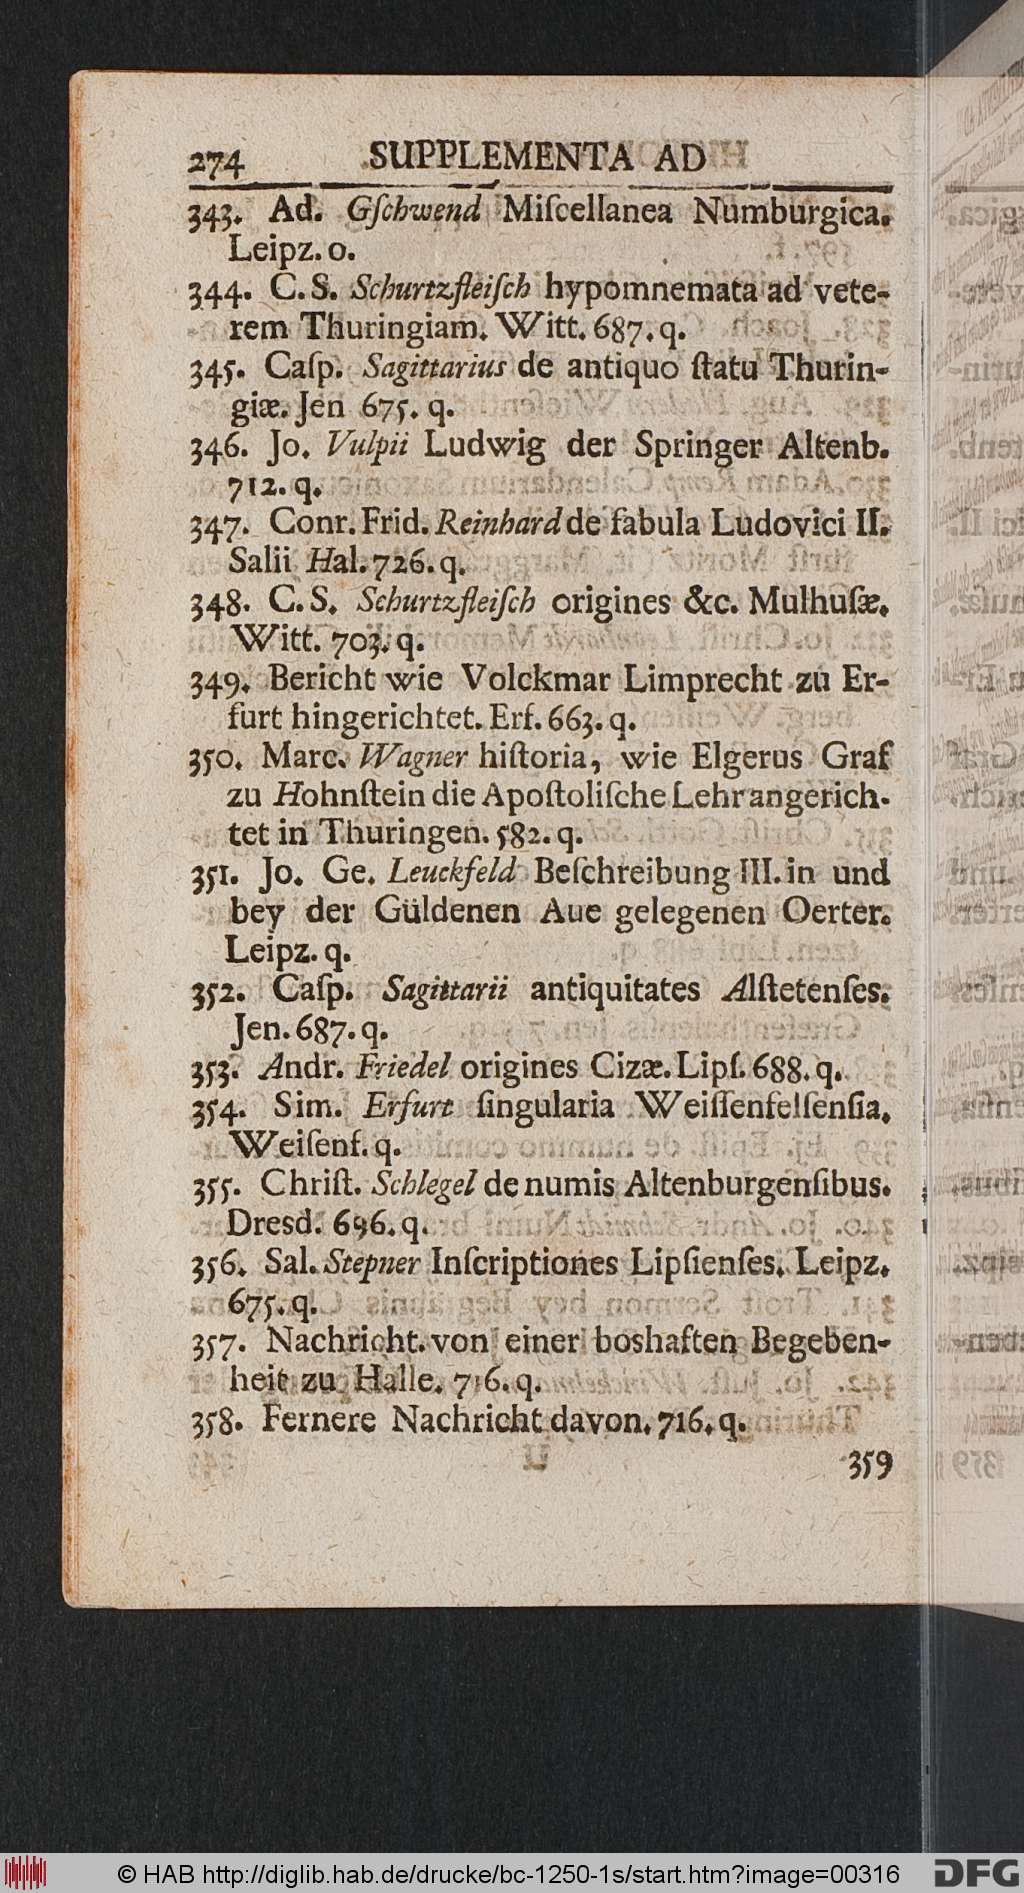 274 SUPPLEMENTA AD
343. Ad. Gſchwend Miſcellanea Numburgica.
Leipz. o.
344. C. S. Schurtzfleiſch hypomnemata ad vete-
rem Thuringiam. Witt. 687. q.
345. Caſp. Sagittarius de antiquo ſtatu Thurin-
giæ. Jen 675. q.
346. Jo. Vulpii Ludwig der Springer Altenb.
712. q.
347. Conr. Frid. Reinhard de fabula Ludovici II.
Salii Hal. 726. q.
348. C. S. Schurtzfleiſch origines &c. Mulhuſæ.
Witt. 703. q.
349. Bericht wie Volckmar Limprecht zu Er-
furt hingerichtet. Erf. 663. q.
350. Marc. Wagner hiſtoria, wie Elgerus Graf
zu Hohnſtein die Apoſtoliſche Lehr angerich-
tet in Thuringen. 582. q.
351. Jo. Ge. Leuckfeld Beſchreibung III. in und
bey der Güldenen Aue gelegenen Oerter.
Leipz. q.
352. Caſp. Sagittarii antiquitates Alſtetenſes.
Jen. 687. q.
353. Andr. Friedel origines Cizæ. Lipſ. 688. q.
354. Sim. Erfurt ſingularia Weiſſenfelſenſia.
Weiſenf. q.
355. Chriſt. Schlegel de numis Altenburgenſibus.
Dresd. 696. q.
356. Sal. Stepner Inſcriptiones Lipſienſes. Leipz.
675. q.
357. Nachricht. von einer boshaften Begeben-
heit zu Halle. 716. q.
358. Fernere Nachricht davon. 716. q.
359
© HAB http://diglib.hab.de/drucke/bc-1250-1s/start.htm?image=00316 DFG